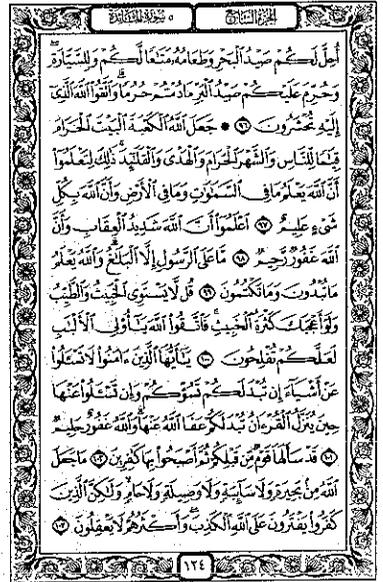 الجزء السابع ٥ سورة المائدة
أُحِلَّ لَكُمْ صَيْدُ ٱلْبَحْرِ وَطَعَامُهُۥ مَتَٰعًا لَّكُمْ وَلِلسَّيَّارَةِ ۖ
وَحُرِّمَ عَلَيْكُمْ صَيْدُ ٱلْبَرِّ مَا دُمْتُمْ حُرُمًا ۗ وَٱتَّقُوا۟ ٱللَّهَ ٱلَّذِىٓ
إِلَيْهِ تُحْشَرُونَ ٩٦ * جَعَلَ ٱللَّهُ ٱلْكَعْبَةَ ٱلْبَيْتَ ٱلْحَرَامَ
قِيَٰمًا لِّلنَّاسِ وَٱلشَّهْرَ ٱلْحَرَامَ وَٱلْهَدْىَ وَٱلْقَلَٰٓئِدَ ۚ ذَٰلِكَ لِتَعْلَمُوٓا۟
أَنَّ ٱللَّهَ يَعْلَمُ مَا فِى ٱلسَّمَٰوَٰتِ وَمَا فِى ٱلْأَرْضِ وَأَنَّ ٱللَّهَ بِكُلِّ
شَىْءٍ عَلِيمٌ ٩٧ ٱعْلَمُوٓا۟ أَنَّ ٱللَّهَ شَدِيدُ ٱلْعِقَابِ وَأَنَّ
ٱللَّهَ غَفُورٌ رَّحِيمٌ ٩٨ مَّا عَلَى ٱلرَّسُولِ إِلَّا ٱلْبَلَٰغُ ۗ وَٱللَّهُ يَعْلَمُ
مَا تُبْدُونَ وَمَا تَكْتُمُونَ ٩٩ قُل لَّا يَسْتَوِى ٱلْخَبِيثُ وَٱلطَّيِّبُ
وَلَوْ أَعْجَبَكَ كَثْرَةُ ٱلْخَبِيثِ ۚ فَٱتَّقُوا۟ ٱللَّهَ يَٰٓأُو۟لِى ٱلْأَلْبَٰبِ
لَعَلَّكُمْ تُفْلِحُونَ ١٠٠ يَٰٓأَيُّهَا ٱلَّذِينَ ءَامَنُوا۟ لَا تَسْـَٔلُوا۟
عَنْ أَشْيَآءَ إِن تُبْدَ لَكُمْ تَسُؤْكُمْ وَإِن تَسْـَٔلُوا۟ عَنْهَا
حِينَ يُنَزَّلُ ٱلْقُرْءَانُ تُبْدَ لَكُمْ عَفَا ٱللَّهُ عَنْهَا ۗ وَٱللَّهُ غَفُورٌ حَلِيمٌ
١٠١ قَدْ سَأَلَهَا قَوْمٌ مِّن قَبْلِكُمْ ثُمَّ أَصْبَحُوا۟ بِهَا كَٰفِرِينَ ١٠٢ مَا جَعَلَ
ٱللَّهُ مِنۢ بَحِيرَةٍ وَلَا سَآئِبَةٍ وَلَا وَصِيلَةٍ وَلَا حَامٍ ۙ وَلَٰكِنَّ ٱلَّذِينَ
كَفَرُوا۟ يَفْتَرُونَ عَلَى ٱللَّهِ ٱلْكَذِبَ ۖ وَأَكْثَرُهُمْ لَا يَعْقِلُونَ ١٠٣
١٢٤